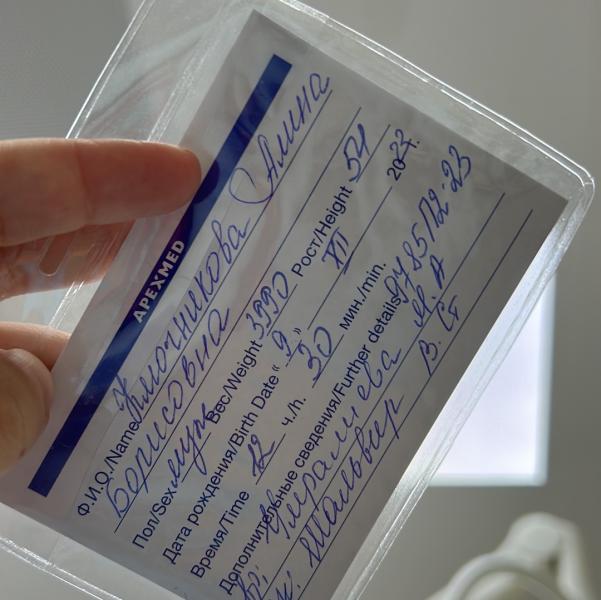 APEXMED
Ф.И.О./Name Ключникова (Алина
Борисовна
Пол/Sex муж Вес/Weight 3990 Рост/Height 54
Дата рождения/Birth Date « 9 » XII 2023 г.
Время/Time 12 ч./h. 30 мин./min.
Дополнительные сведения/Further details 9785/12-23
М А
В. Ст